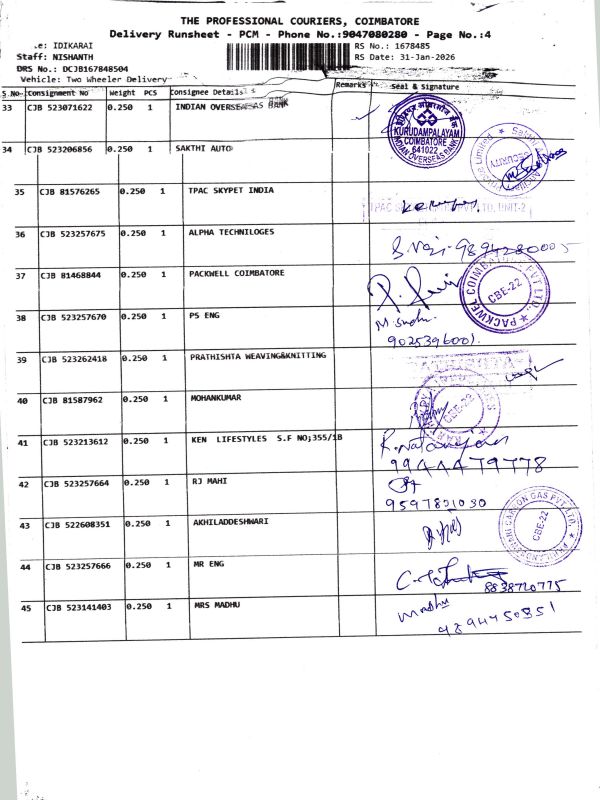 THE PROFESSIONAL COURIERS, COIMBATORE
Delivery Runsheet - PCM - Phone No.:9047080280 - Page No.:4
.e: IDIKARAI RS No.: 1678485
Staff: NISHANTH RS Date: 31-Jan-2026
DRS No.: DCJB167848504
Vehicle: Two Wheeler Delivery
S.No Consignment No Weight PCS Consignee Details Remarks Seal & Signature
33 CJB 523071622 0.250 1 INDIAN OVERSEAS BANK
KURUDAMPALAYAM
COIMBATORE
641022
INDIAN OVERSEAS BANK
34 CJB 523206856 0.250 1 SAKTHI AUTO
SECURITY
35 CJB 81576265 0.250 1 TPAC SKYPET INDIA
36 CJB 523257675 0.250 1 ALPHA TECHNILOGES
9894280005
37 CJB 81468844 0.250 1 PACKWELL COIMBATORE
PACKWEL COIMBATORE PVT LTD.,
CBE-22
38 CJB 523257670 0.250 1 PS ENG
9025396001
39 CJB 523262418 0.250 1 PRATHISHTA WEAVING&KNITTING
40 CJB 81587962 0.250 1 MOHANKUMAR
CBE-22
41 CJB 523213612 0.250 1 KEN LIFESTYLES S.F NO;355/1B
R.Natarajan
9944479778
42 CJB 523257664 0.250 1 RJ MAHI
9597821030
43 CJB 522608351 0.250 1 AKHILADDESHWARI
CARBON GAS PVT LTD.
CBE-22
44 CJB 523257666 0.250 1 MR ENG
8838720775
45 CJB 523141403 0.250 1 MRS MADHU
Madhu
9894750851